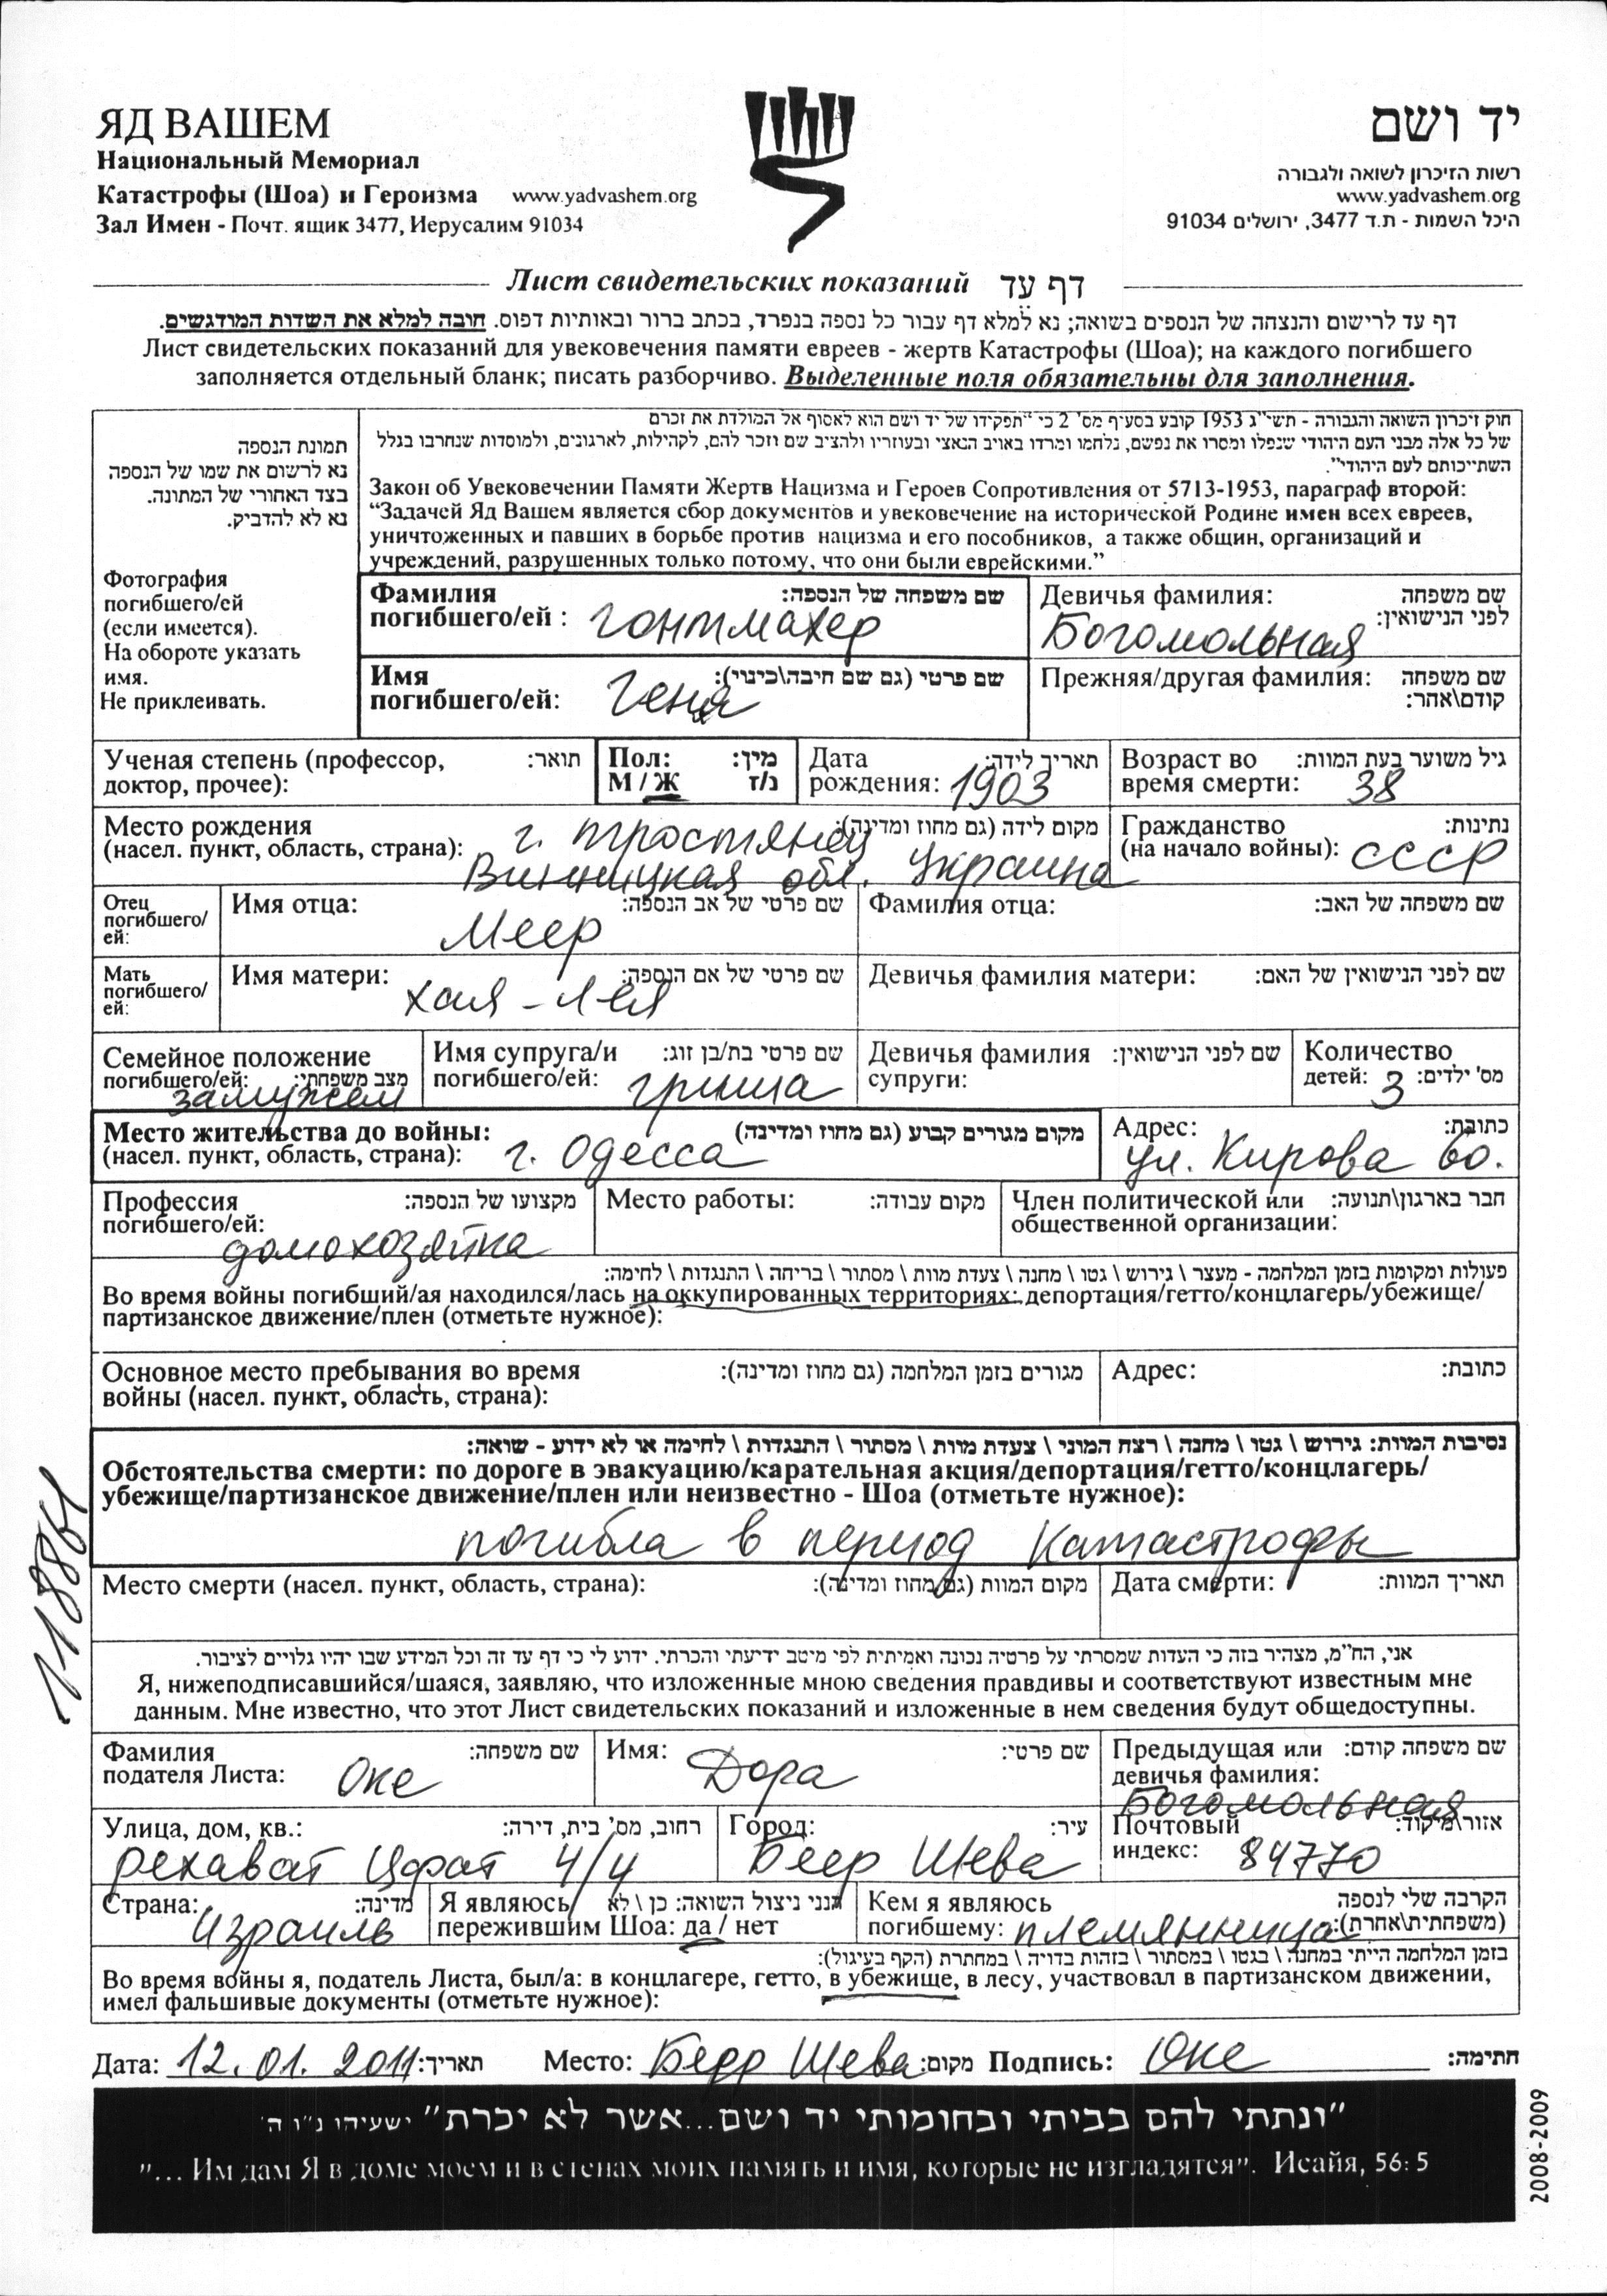 ЯД ВАШЕМ
Национальный Мемориал
Катастрофы (Шоа) и Героизма www.yadvashem.org
Зал Имен - Почт. ящик 3477, Иерусалим 91034
יד ושם
רשות הזיכרון לשואה ולגבורה
www.yadvashem.org
היכל השמות - ת.ד 3477, ירושלים 91034
Лист свидетельских показаний דף עד
דף עד לרישום והנצחה של הנספים בשואה; נא למלא דף עבור כל נספה בנפרד, בכתב ברור ובאותיות דפוס. חובה למלא את השדות המודגשים.
Лист свидетельских показаний для увековечения памяти евреев - жертв Катастрофы (Шоа); на каждого погибшего
заполняется отдельный бланк; писать разборчиво. Выделенные поля обязательны для заполнения.
תמונת הנספה
נא לרשום את שמו של הנספה
בצד האחורי של התמונה.
נא לא להדביק.
Фотография
погибшего/ей
(если имеется).
На обороте указать
имя.
Не приклеивать.
חוק זיכרון השואה והגבורה - תשי"ג 1953 קובע בסעיף מס' 2 כי "תפקידו של יד ושם הוא לאסוף אל המולדת את זכרם
של כל אלה מבני העם היהודי שנפלו ומסרו את נפשם, נלחמו ומרדו באויב הנאצי ובעוזריו ולהציב שם וזכר להם, לקהילות, לארגונים, ולמוסדות שנחרבו בגלל
השתייכותם לעם היהודי".
Закон об Увековечении Памяти Жертв Нацизма и Героев Сопротивления от 5713-1953, параграф второй:
“Задачей Яд Вашем является сбор документов и увековечение на исторической Родине имен всех евреев,
уничтоженных и павших в борьбе против нацизма и его пособников, а также общин, организаций и
учреждений, разрушенных только потому, что они были еврейскими.”
Фамилия שם משפחה של הנספה:
погибшего/ей : Гонтмахер
Девичья фамилия: שם משפחה
לפני הנישואין:
Богомольная
Имя שם פרטי (גם שם חיבה\כינוי):
погибшего/ей: Геня
Прежняя/другая фамилия: שם משפחה
קודם\אחר:
Ученая степень (профессор, תואר:
доктор, прочее):
Пол: מין:
М / Ж ז/נ
Дата תאריך לידה:
рождения: 1903
Возраст во גיל משוער בעת המוות:
время смерти: 38
Место рождения מקום לידה (גם מחוז ומדינה):
(насел. пункт, область, страна): г. Тростянец
Винницкая обл. Украина
Гражданство נתינות:
(на начало войны): СССР
Отец
погибшего/
ей:
Имя отца: שם פרטי של אב הנספה:
Меер
Фамилия отца: שם משפחה של האב:
Мать
погибшего/
ей:
Имя матери: שם פרטי של אם הנספה:
Хая-Лея
Девичья фамилия матери: שם לפני הנישואין של האם:
Семейное положение
погибшего/ей: מצב משפחתי:
замужем
Имя супруга/и שם פרטי בת/בן זוג:
погибшего/ей: Гриша
Девичья фамилия שם לפני הנישואין:
супруги:
Количество
детей: מס' ילדים:
3
Место жительства до войны: מקום מגורים קבוע (גם מחוז ומדינה)
(насел. пункт, область, страна): г. Одесса
Адрес: כתובת:
ул. Кирова 60.
Профессия מקצועו של הנספה:
погибшего/ей:
домохозяйка
Место работы: מקום עבודה:
Член политической или חבר בארגון\תנועה:
общественной организации:
פעולות ומקומות בזמן המלחמה - מעצר \ גירוש \ גטו \ מחנה \ צעדת מוות \ מסתור \ בריחה \ התנגדות \ לחימה:
Во время войны погибший/ая находился/лась на оккупированных территориях: депортация/гетто/концлагерь/убежище/
партизанское движение/плен (отметьте нужное):
Основное место пребывания во время מגורים בזמן המלחמה (גם מחוז ומדינה):
войны (насел. пункт, область, страна):
Адрес: כתובת:
נסיבות המוות: גירוש \ גטו \ מחנה \ רצח המוני \ צעדת מוות \ מסתור \ התנגדות \ לחימה או לא ידוע - שואה:
Обстоятельства смерти: по дороге в эвакуацию/карательная акция/депортация/гетто/концлагерь/
убежище/партизанское движение/плен или неизвестно - Шоа (отметьте нужное):
погибла в период Катастрофы
Место смерти (насел. пункт, область, страна): מקום המוות (גם מחוז ומדינה):
Дата смерти: תאריך המוות:
אני, הח"מ, מצהיר בזה כי העדות שמסרתי על פרטיה נכונה ואמיתית לפי מיטב ידיעתי והכרתי. ידוע לי כי דף עד זה וכל המידע שבו יהיו גלויים לציבור.
Я, нижеподписавшийся/шаяся, заявляю, что изложенные мною сведения правдивы и соответствуют известным мне
данным. Мне известно, что этот Лист свидетельских показаний и изложенные в нем сведения будут общедоступны.
Фамилия שם משפחה:
подателя Листа: Оке
Имя: שם פרטי:
Дора
Предыдущая или שם משפחה קודם:
девичья фамилия:
Богомольная
Улица, дом, кв.: רחוב, מס' בית, דירה:
Рехават Цфат 4/4
Город: עיר:
Беер Шева
Почтовый אזור\מיקוד:
индекс: 84770
Страна: מדינה:
Израиль
Я являюсь הנני ניצול השואה: כן \ לא
пережившим Шоа: да / нет
Кем я являюсь הקרבה שלי לנספה
погибшему: (משפחתית\אחרת):
племянница
בזמן המלחמה הייתי במחנה \ בגטו \ במסתור \ בזהות בדויה \ במחתרת (הקף בעיגול):
Во время войны я, податель Листа, был/а: в концлагере, гетто, в убежище, в лесу, участвовал в партизанском движении,
имел фальшивые документы (отметьте нужное):
Дата: 12.01.2011 תאריך: Место: Беер Шева מקום: Подпись: Оке חתימה:
"ונתתי להם בביתי ובחומותי יד ושם...אשר לא יכרת" ישעיהו נ"ו ה'
"... Им дам Я в доме моем и в стенах моих память и имя, которые не изгладятся". Исайя, 56: 5
118861
2008-2009